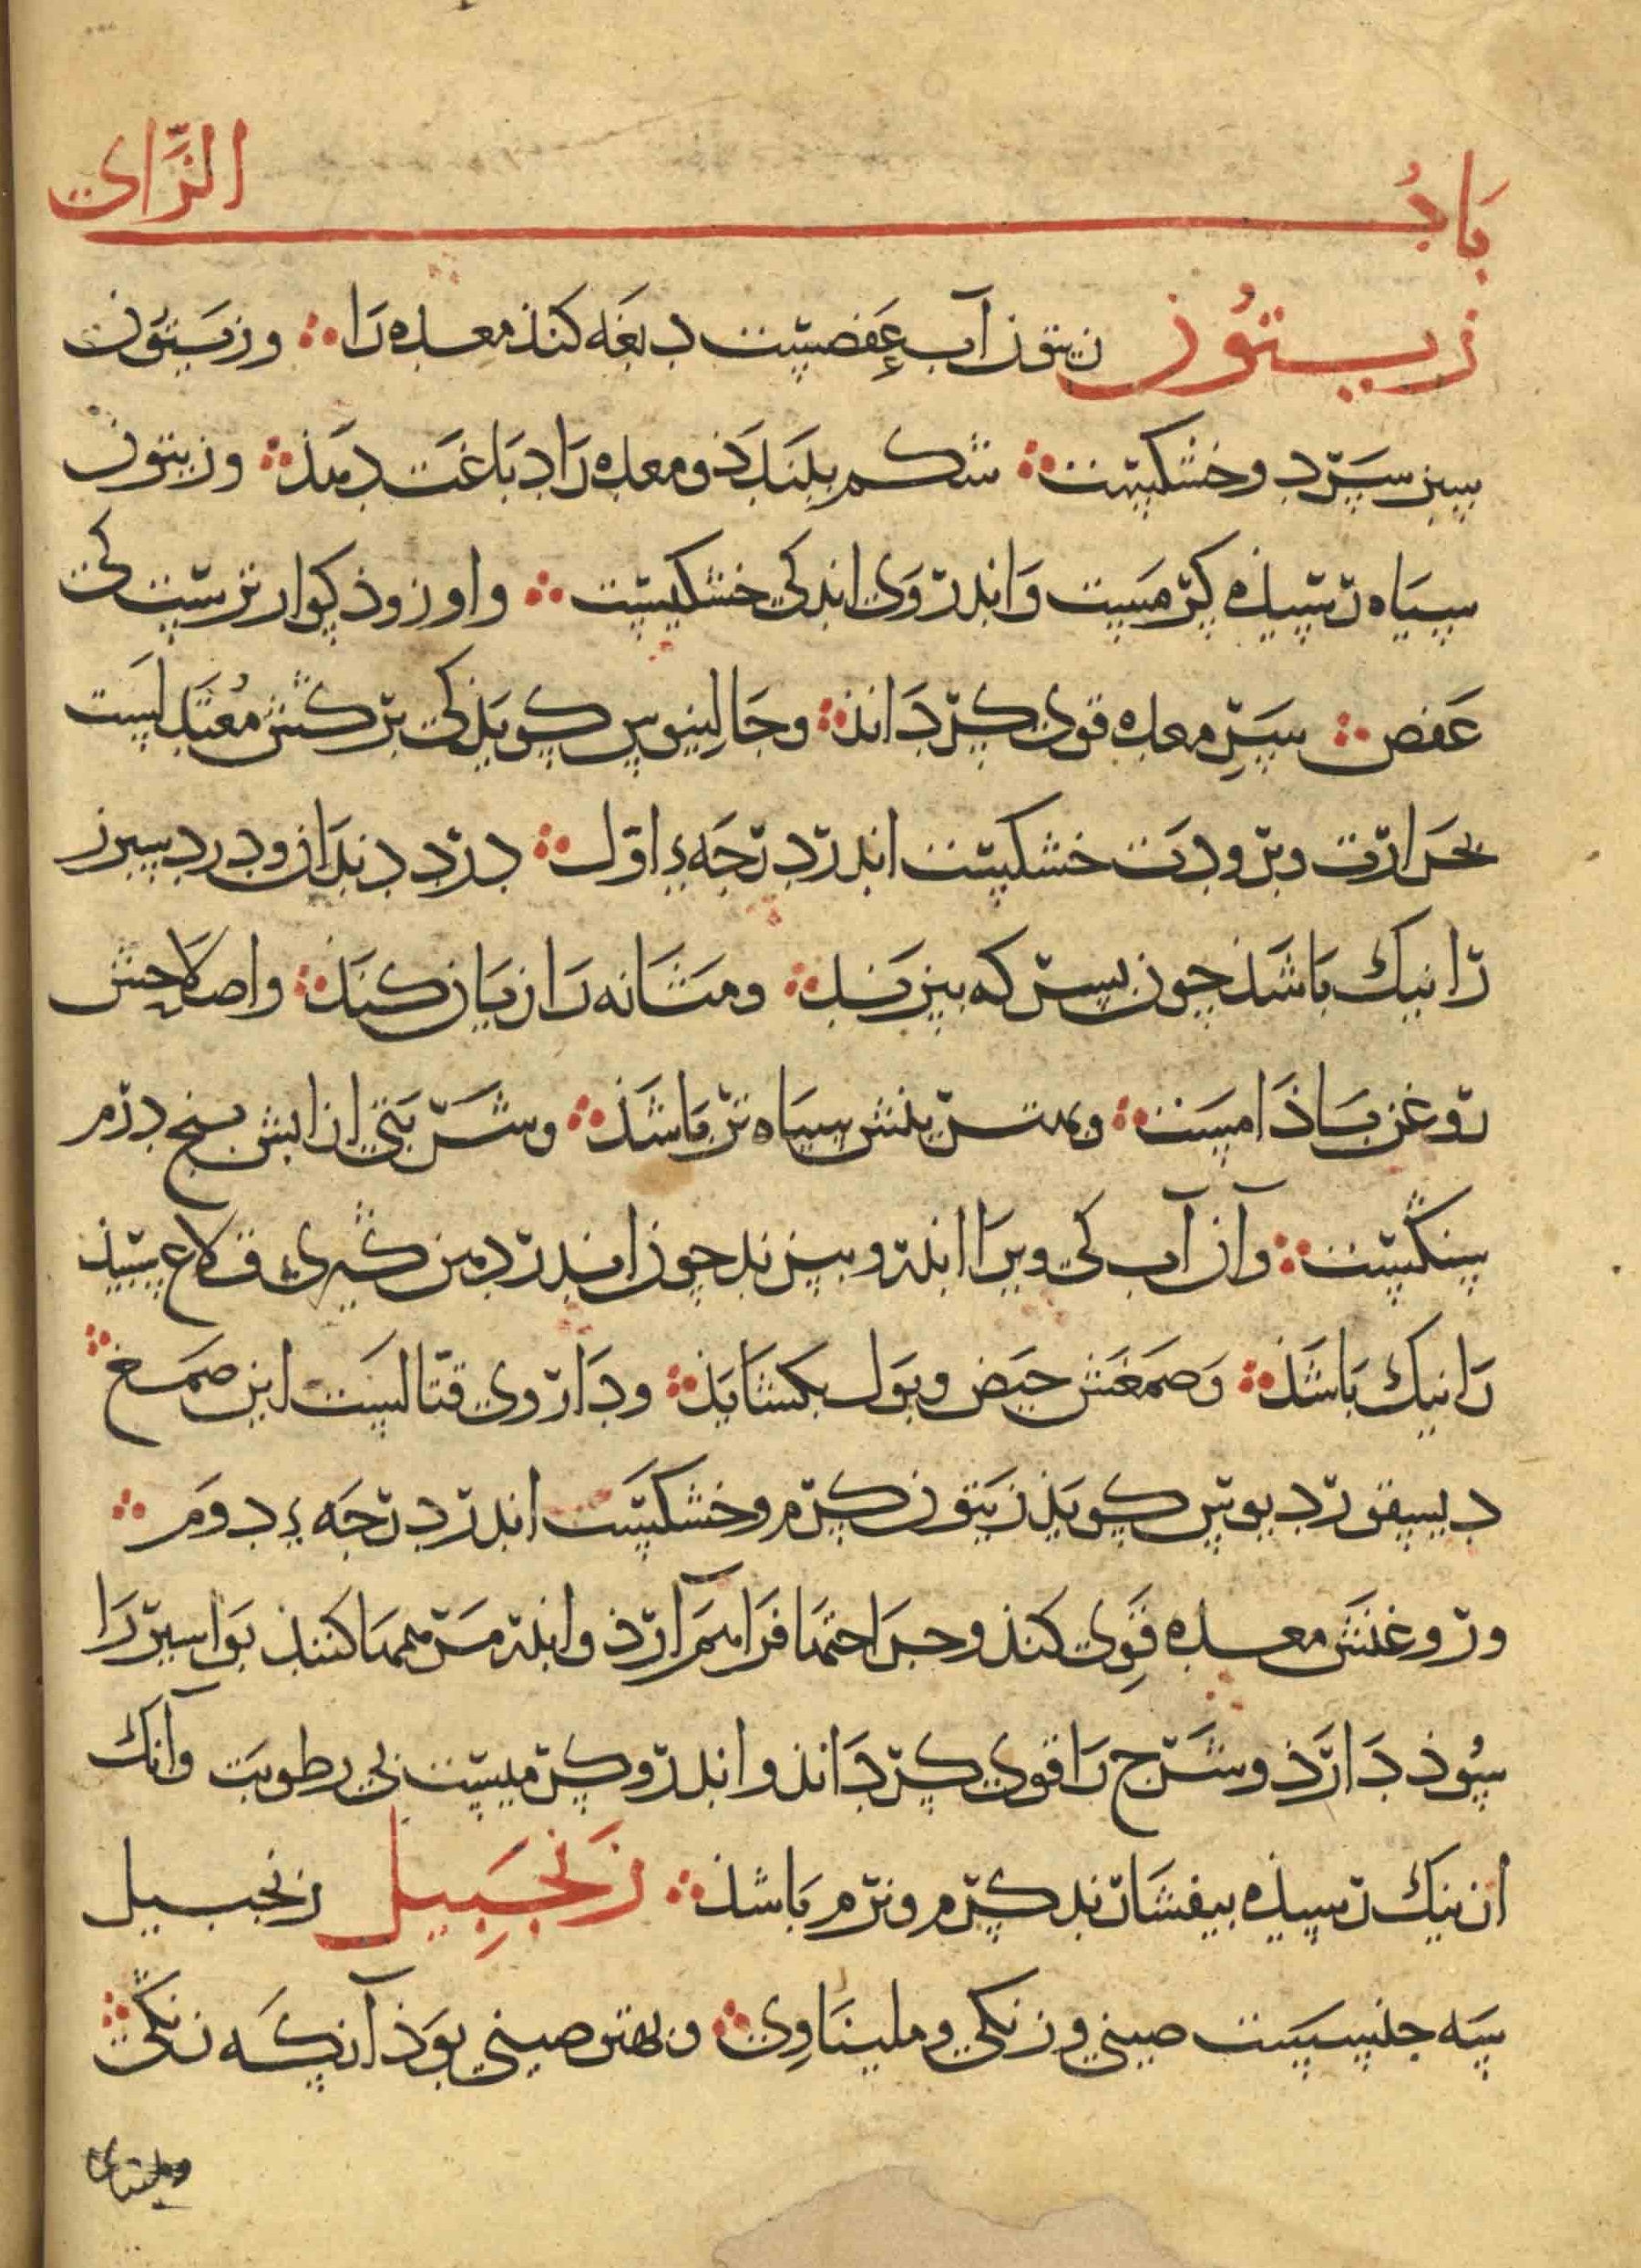 باب الزّای
زیتون زیتون آب عفصیست دبغه کند معده را وزیتون
سبز سرد وخشکست شکم ببندذ ومعده را دباغت دهذ وزیتون
سیاه رسیذه کرمست واندر وی اندکی خشکیست واو زوذ کوارترست کی
عفص سر معده قوی کرداند وجالینوس کویذ کی برکش معتدلست
بحرارت وبرودت خشکیست اندر درجهٔ اوّل درد دندان ودرد سپرز
را نیک باشذ چون بسرکه بپزند ومثانه را زیان کنذ واصلاحش
روغن باذامست وبهترینش سیاه تر باشذ وشربتی ازابش پنج درم
سنکست وآن آب کی ویرا اندرو بپزند چون اندر دهن کیری قلاع سپیذ
را نیک باشذ وصمغش حیض وبول بکشایذ وداروی قتالست این صمغ
دیسقوردیوس کویذ زیتون کرم وخشکست اندر درجهٔ دوم
وروغنش معده قوی کنذ وجراحتها فراهم آرذ واندر مرهمها کنند بواسیر را
سوذ دارذ وشرج را قوی کرداند واندرو کرمیست بی رطوبت وآنک
از نیک رسیذه بیفشارند کرم ونرم باشذ زنجبیل زنجبیل
سه جنسست صینی وزنکی وملیناوی وبهتر صینی بوذ آنکه زنکی